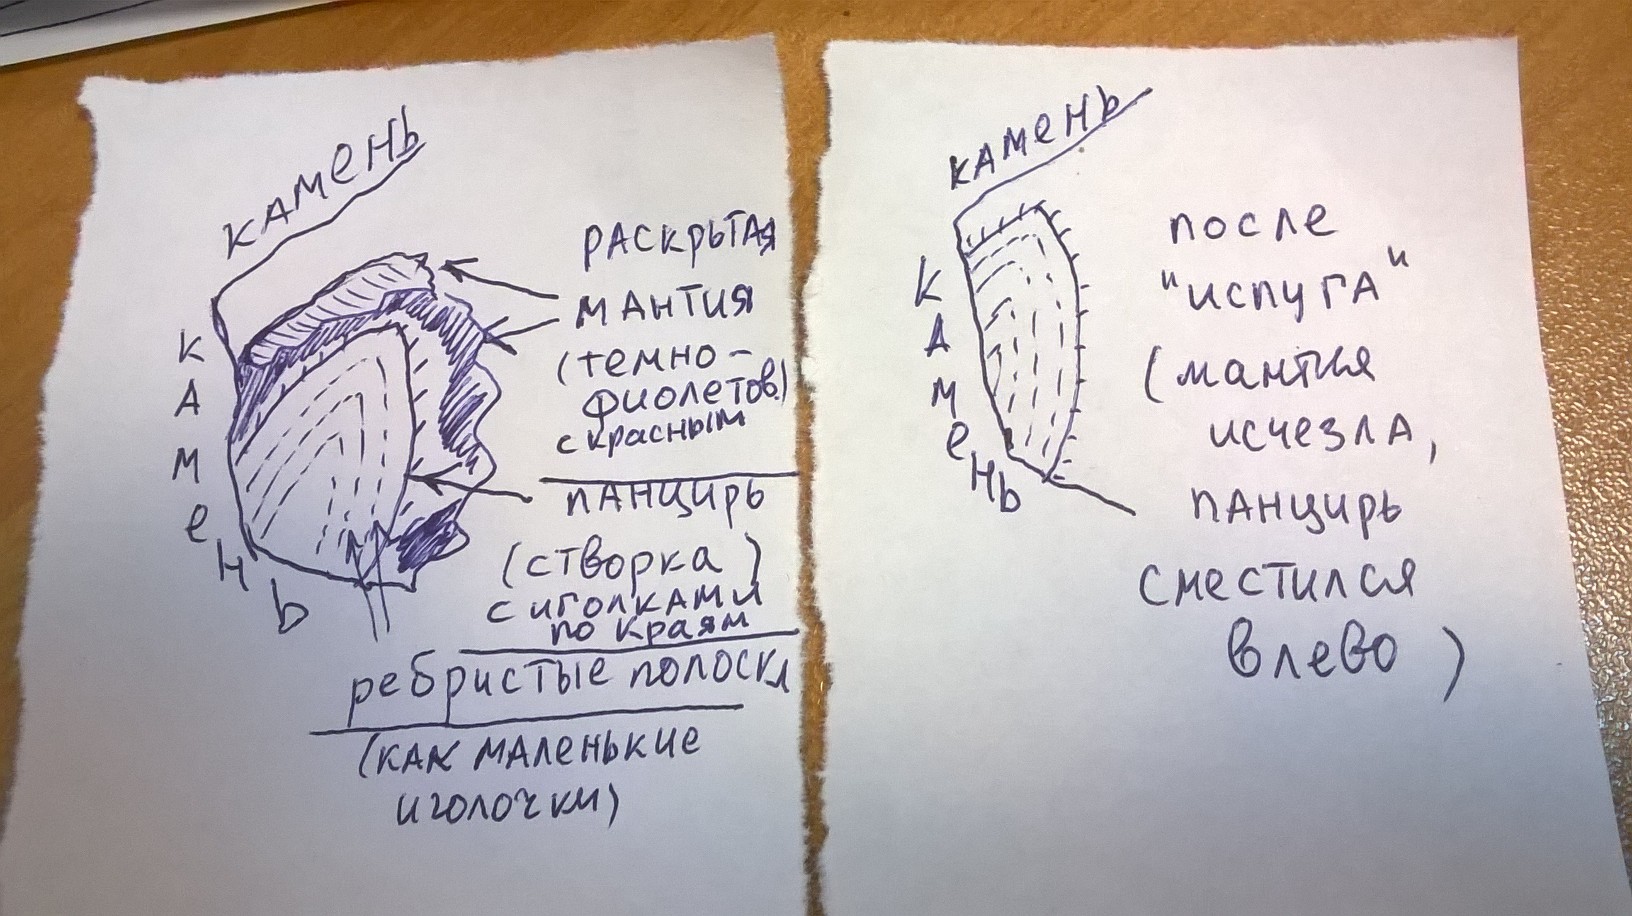 КАМЕНЬ
КАМеНЬ
РАСКРЫТАЯ
МАНТИЯ
(темно-
фиолетов.)
с красным
ПАНЦИРЬ
(створка)
с иголками
по краям
ребристые полоски
(как маленькие
иголочки)
КАМЕНЬ
КАМеНЬ
после
"испуга"
(мантия
исчезла,
панцирь
сместился
влево)